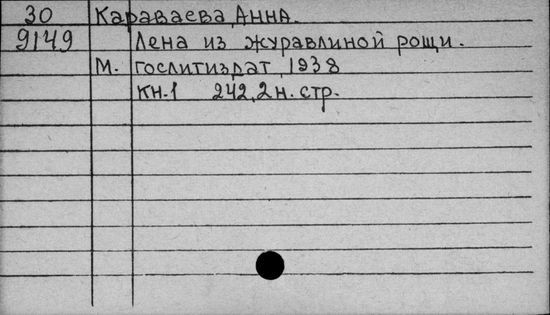 30 Караваева, Анна.
9149 Лена из журавлиной рощи.
М. Гослитиздат, 1938
Кн.1 242, 2 н. стр.